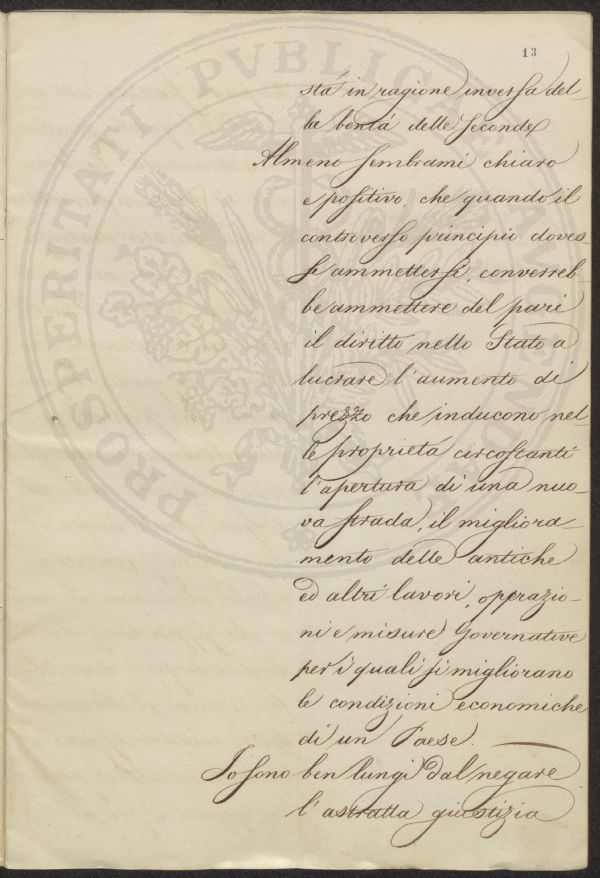 13
stá in ragione inversa del-
la bontá delle seconde
Almeno sembrami chiaro
e positivo, che quando il
controverso principio doves-
se ammettersi, converreb-
be ammettere del pari
il diritto nello Stato a
lucrare l'aumento di
prezzo che inducono nel-
le proprietá circostanti
l'apertura di una nuo-
va strada, il migliora-
mento delle antiche
ed altri lavori, operazio-
ni e misure Governative
per i quali si migliorano
le condizioni economiche
di un Paese.
Io sono ben lungi dal negare
l'astratta giustizia
PROSPERITATI PVBLICAE